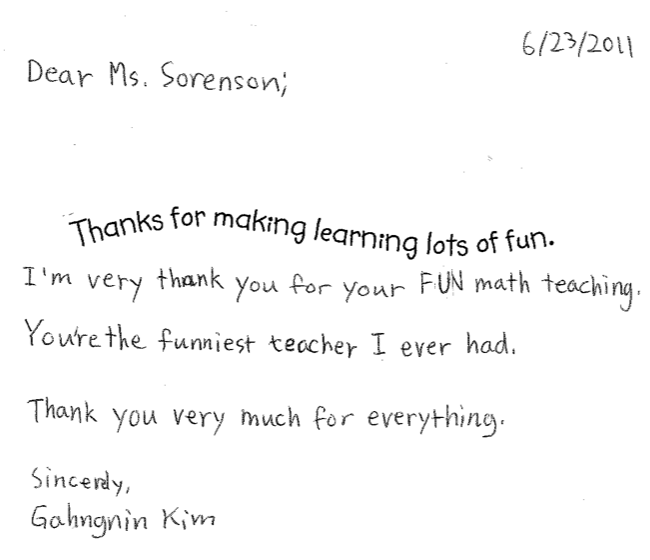 6/23/2011
Dear Ms. Sorenson;
Thanks for making learning lots of fun.
I'm very thank you for your FUN math teaching.
You're the funniest teacher I ever had.
Thank you very much for everything.
Sincerely,
Gahngnin Kim